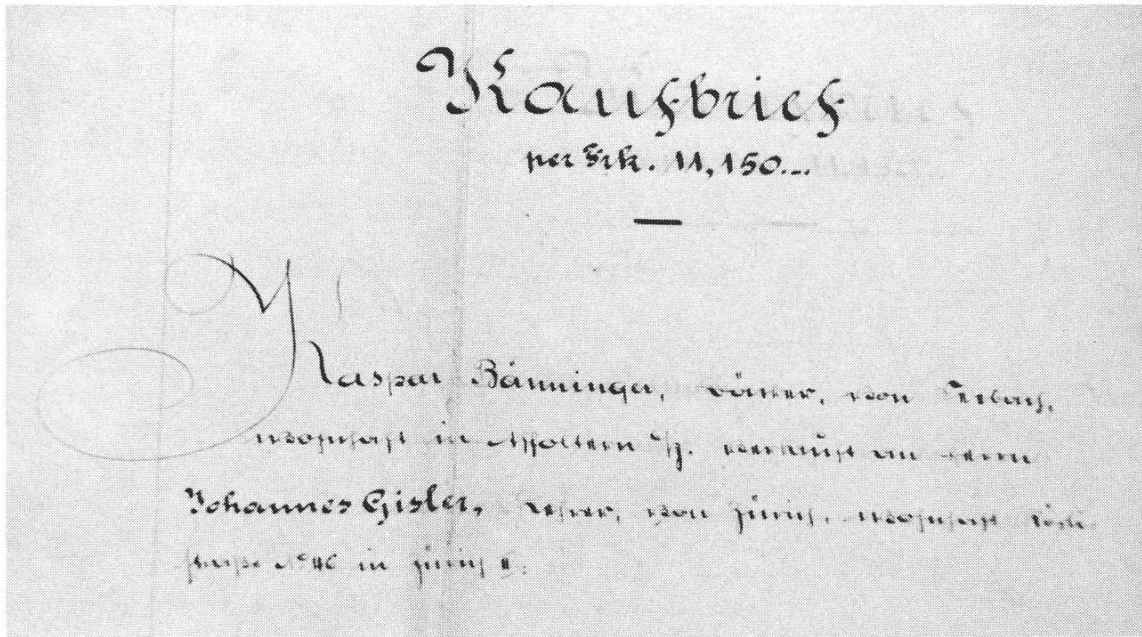 Kaufbrief
per Frk. 11,150.–
Kaspar Bänninger, von Seebach,
wohnhaft in Affoltern b/Z. verkauft an Herrn
Johannes Gisler, Lehrer, von Zürich, wohnhaft
straße No 46 in Zürich